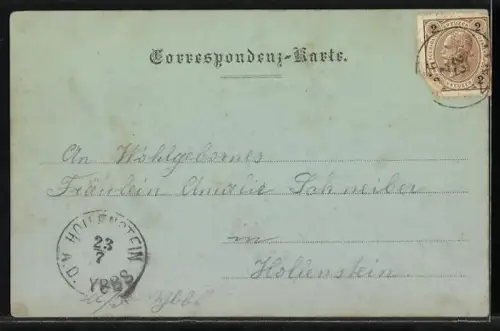 Correspondenz-Karte.
2 2
2
An Wohlgebornes
Fräulein Amalie Schneiber
in
Hollenstein
a/d Ybbs
HOLLENSTEIN
A.D. YBBS
23
7